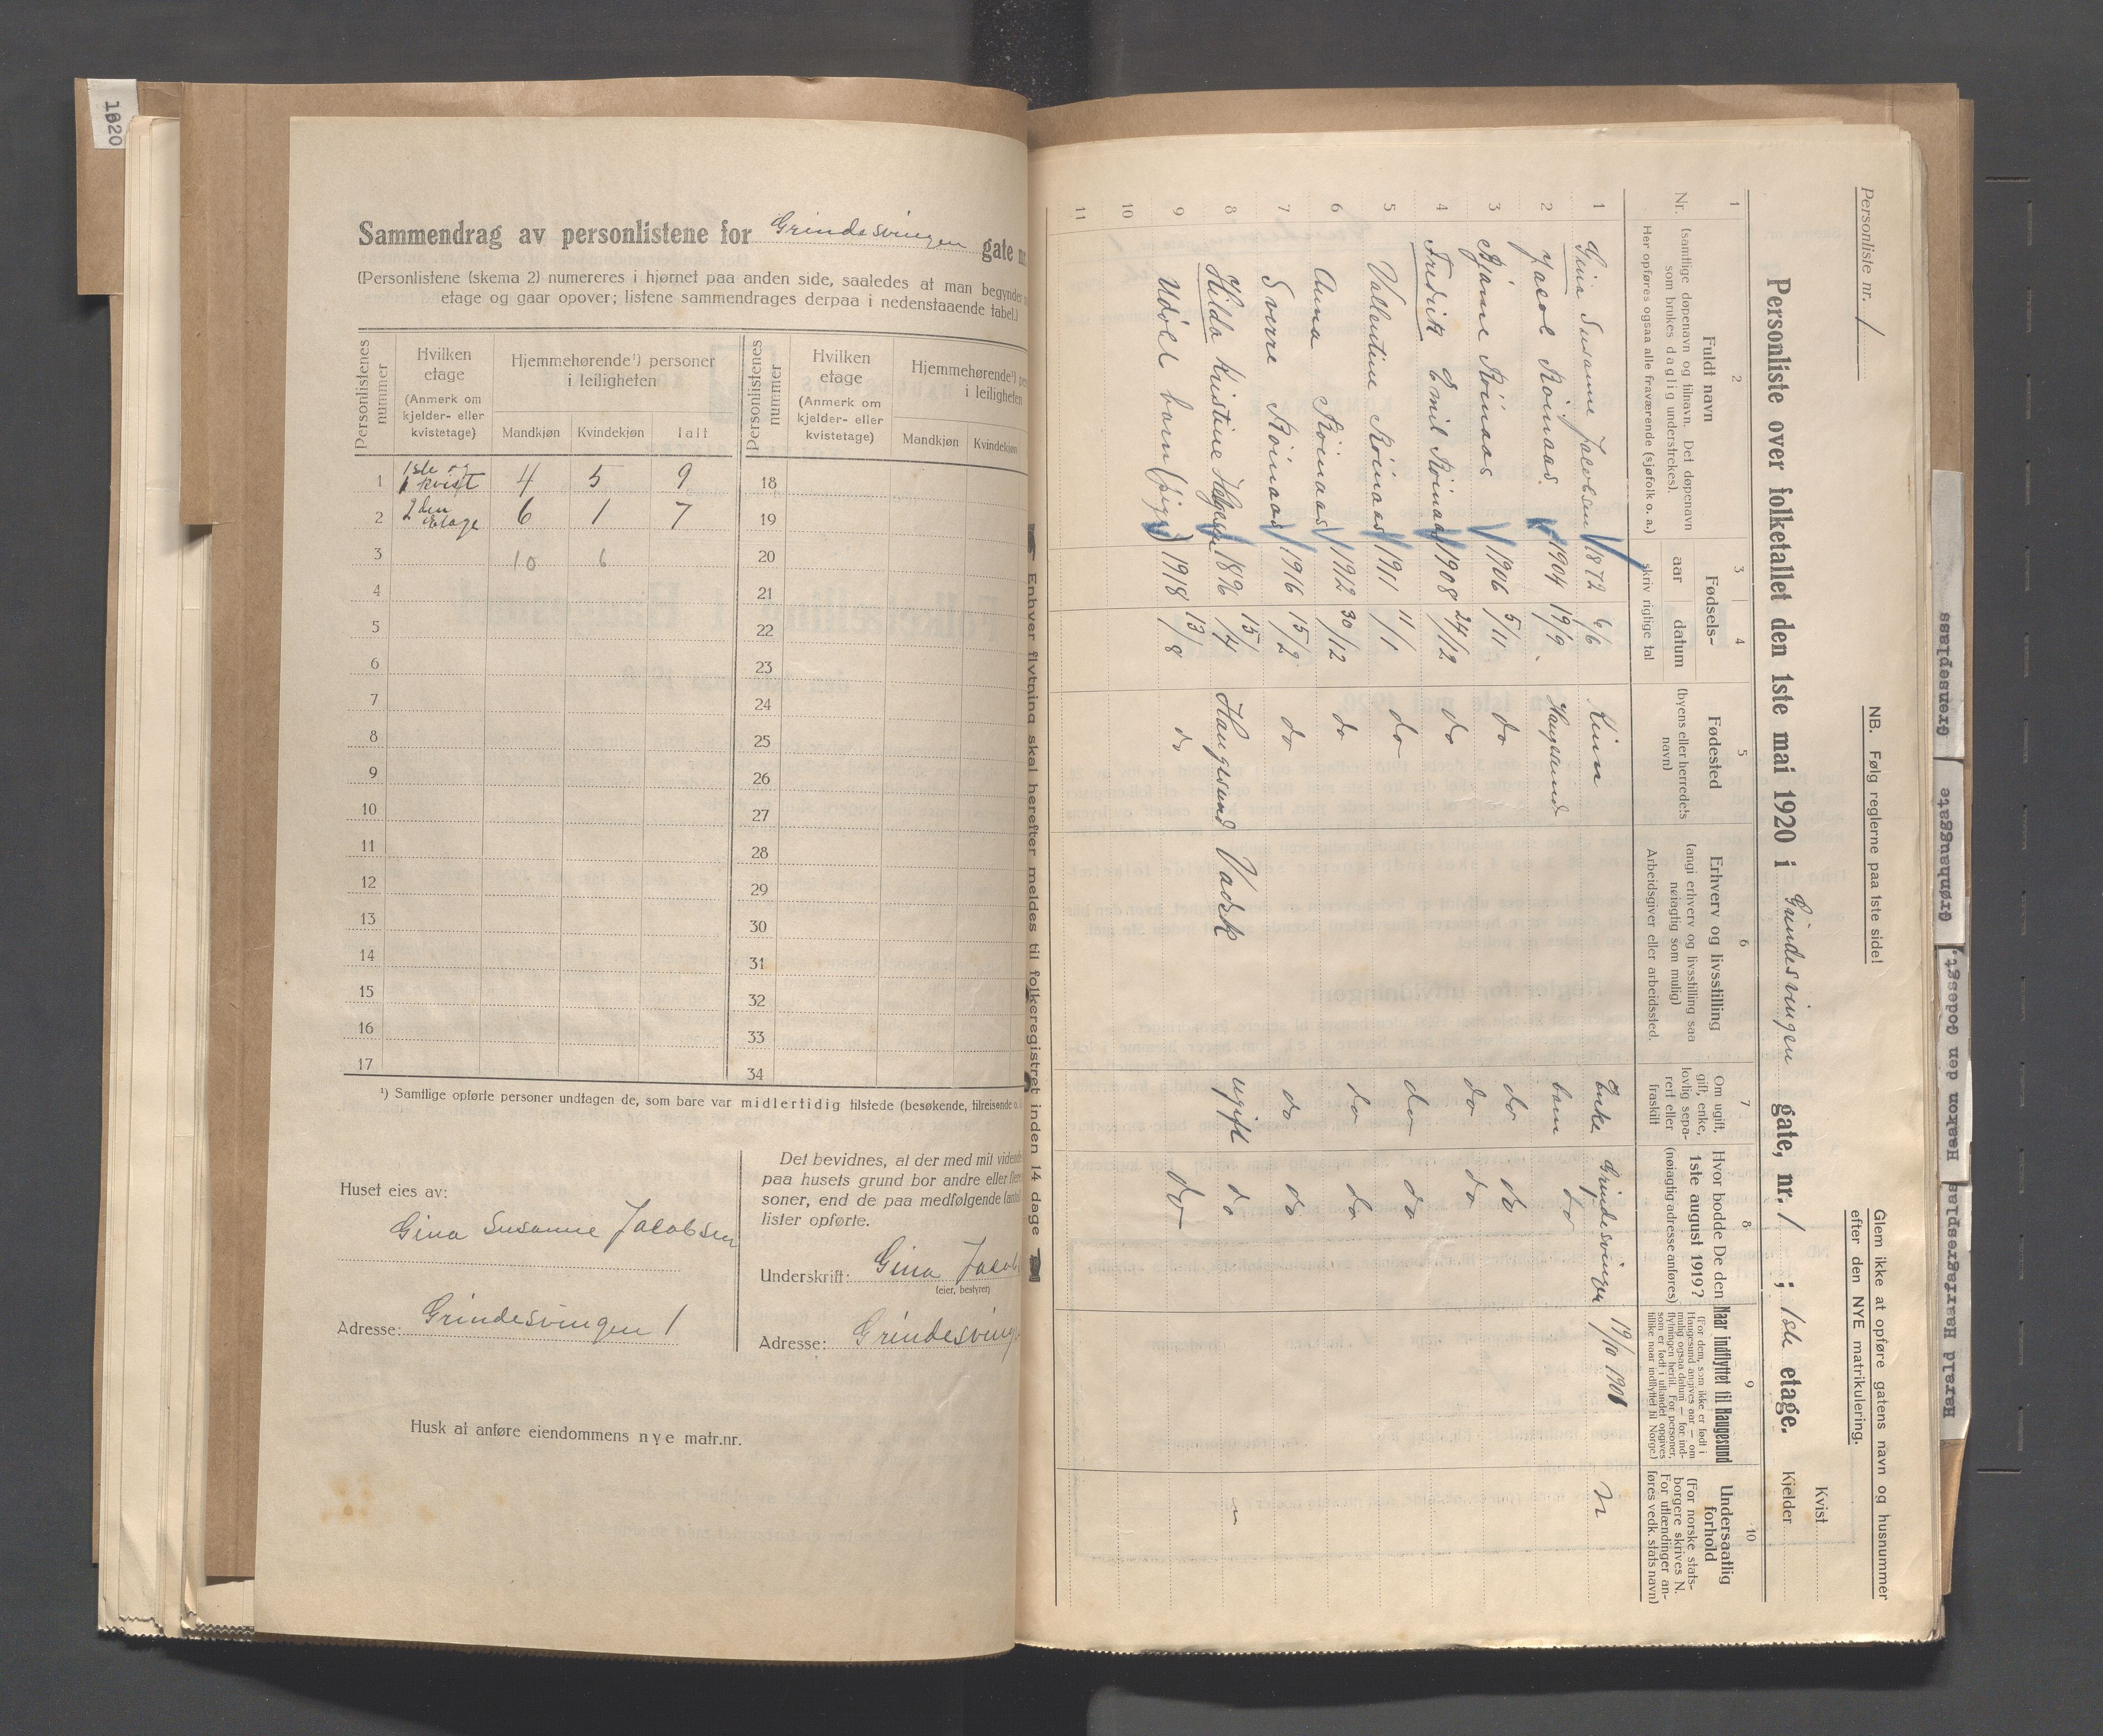 1920
Sammendrag av personlistene for Grindesvingen gate nr.
(Personlistene (skema 2) numereres i hjørnet paa anden side, saaledes at man begynder
etage og gaar opover; listene sammendrages derpaa i nedenstaaende tabel.)
Personlistenes nummer
Hvilken etage
(Anmerk om kjelder- eller kvistetage)
Hjemmehørende¹) personer i leiligheten
Mandkjøn Kvindekjøn Ialt
Personlistenes nummer
Hvilken etage
(Anmerk om kjelder- eller kvistetage)
Hjemmehørende¹)
i leiligheten
Mandkjøn Kvindekjøn
1 1ste og kvist 4 5 9 18
2 2den Etage 6 1 7 19
3 10 6 20
4 21
5 22
6 23
7 24
8 25
9 26
10 27
11 28
12 29
13 30
14 31
15 32
16 33
17 34
¹) Samtlige opførte personer undtagen de, som bare var midlertidig tilstede (besøkende, tilreisende o.
Huset eies av:
Gina Susanne Jacobsen
Adresse: Grindesvingen 1
Det bevidnes, at der med mit vidende
paa husets grund bor andre eller flere
soner, end de paa medfølgende
lister opførte.
Underskrift: Gina
(eier, bestyrer)
Adresse:
Husk at anføre eiendommens nye matr.nr.
Enhver flytning skal herefter meldes til folkeregistret inden 14 dage
Personliste nr. 1
NB. Følg reglerne paa 1ste side!
Glem ikke at opføre gatens navn og husnummer
efter den NYE matrikulering.
Personliste over folketallet den 1ste mai 1920 i Grindesvingen gate, nr. 1 ; 1ste etage.
Kvist
Kjelder
1 2 3 4 5 6 7 8 9 10
Nr.
Fuldt navn
(samtlige døpenavn og tilnavn. Det døpenavn
som brukes daglig understrekes).
Her opføres ogsaa alle fraværende (sjøfolk o. a.)
Fødsels-
aar datum
skriv rigtige tal
Fødested
(byens eller herredets
navn)
Erhverv og livsstilling
(angi erhverv og livsstilling saa
nøiagtig som mulig)
Arbeidsgiver eller arbeidssted.
Om ugift,
gift, enke,
lovlig sepa-
rert eller
fraskilt
Hvor bodde De den
1ste august 1919?
(nøiagtig adresse anføres)
Naar indflyttet til Haugesund
(For dem, som ikke er født i
Haugesund angives aar — om
mulig ogsaa datum — for ind-
flytningen hertil. For personer,
som er født i utlandet opgives
tillike naar indflyttet til Norge.)
Undersaatlig
forhold
(For norske stats-
borgere skrives N.
For utlændinger an-
føres vedk. stats navn)
1 Gina Susanne Jacobsen 1872 6/6 Kinn Enke Grindesvingen 19/10 1901 n
2 Jacob Røinaas 1904 19/9 Haugesund barn do
3 Bjarne Røinaas 1906 5/11 do do do
4 Fredrik Emil Røinaas 1908 24/12 do do do
5 Vallentine Røinaas 1911 11/1 do do do
6 Anna Røinaas 1912 30/12 do do do
7 Sverre Røinaas 1916 15/2 do do do
8 Hilda Kristine 1896 15/4 Haugesund Vadsk ugift do
9 Udøbt barn (pige) 1918 13/8 do do
10
11
Grønseplass
Grønhauggate
Haakon den Godesgt.
Harald Haarfagresplas